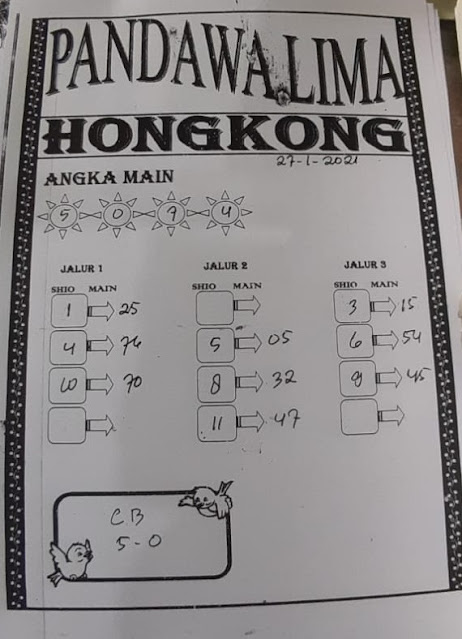 PANDAWA LIMA
HONGKONG
27-1-2021
ANGKA MAIN
5 0 9 4
JALUR 1 JALUR 2 JALUR 3
SHIO MAIN SHIO MAIN SHIO MAIN
1 25 3 15
4 76 5 05 6 54
10 70 8 32 9 45
11 47
CB
5-0